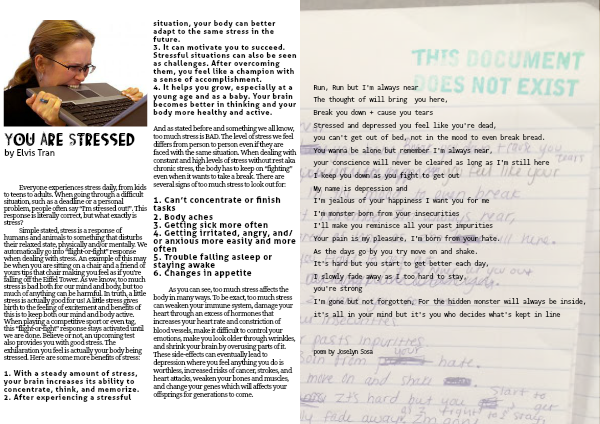 YOU ARE STRESSED
by Elvis Tran
Everyone experiences stress daily, from kids
to teens to adults. When going through a difficult
situation, such as a deadline or a personal
problem, people often say "I'm stressed out!". This
response is literally correct, but what exactly is
stress?
Simply stated, stress is a response of
humans and animals to something that disturbs
their relaxed state, physically and/or mentally. We
automatically go into "flight-or-fight" response
when dealing with stress. An example of this may
be when you are sitting on a chair and a friend of
yours tips that chair making you feel as if you're
falling off the Eiffel Tower. As we know, too much
stress is bad both for our mind and body, but too
much of anything can be harmful. In truth, a little
stress is actually good for us! A little stress gives
birth to the feeling of excitement and benefits of
this is to keep both our mind and body active.
When playing a competitive sport or even tag,
this "flight-or-fight" response stays activated until
we are done. Believe or not, an upcoming test
also provides you with good stress. The
exhilaration you feel is actually your body being
stressed. Here are some more benefits of stress:
1. With a steady amount of stress,
your brain increases its ability to
concentrate, think, and memorize.
2. After experiencing a stressful
situation, your body can better
adapt to the same stress in the
future.
3. It can motivate you to succeed.
Stressful situations can also be seen
as challenges. After overcoming
them, you feel like a champion with
a sense of accomplishment.
4. It helps you grow, especially at a
young age and as a baby. Your brain
becomes better in thinking and your
body more healthy and active.
And as stated before and something we all know,
too much stress is BAD. The level of stress we feel
differs from person to person even if they are
faced with the same situation. When dealing with
constant and high levels of stress without rest aka
chronic stress, the body has to keep on "fighting"
even when it wants to take a break. There are
several signs of too much stress to look out for:
1. Can't concentrate or finish
tasks
2. Body aches
3. Getting sick more often
4. Getting irritated, angry, and/
or anxious more easily and more
often
5. Trouble falling asleep or
staying awake
6. Changes in appetite
As you can see, too much stress affects the
body in many ways. To be exact, too much stress
can weaken your immune system, damage your
heart through an excess of hormones that
increases your heart rate and constriction of
blood vessels, make it difficult to control your
emotions, make you look older through wrinkles,
and shrink your brain by overusing parts of it.
These side-effects can eventually lead to
depression where you feel anything you do is
worthless, increased risks of cancer, strokes, and
heart attacks, weaken your bones and muscles,
and change your genes which will affects your
offsprings for generations to come.
THIS DOCUMENT
DOES NOT EXIST
Run, Run but I'm always near
The thought of will bring you here,
Break you down + cause you tears
Stressed and depressed you feel like you're dead,
you can't get out of bed, not in the mood to even break bread.
You wanna be alone but remember I'm always near,
your conscience will never be cleared as long as I'm still here
I keep you down as you fight to get out
My name is depression and
I'm jealous of your happiness I want you for me
I'm monster born from your insecurities
I'll make you reminisce all your past impurities
Your pain is my pleasure, I'm born from your hate.
As the days go by you try move on and shake.
It's hard but you start to get better each day,
I slowly fade away as I too hard to stay,
you're strong
I'm gone but not forgotten, For the hidden monster will always be inside,
it's all in your mind but it's you who decides what's kept in line
poem by Joselyn Sosa